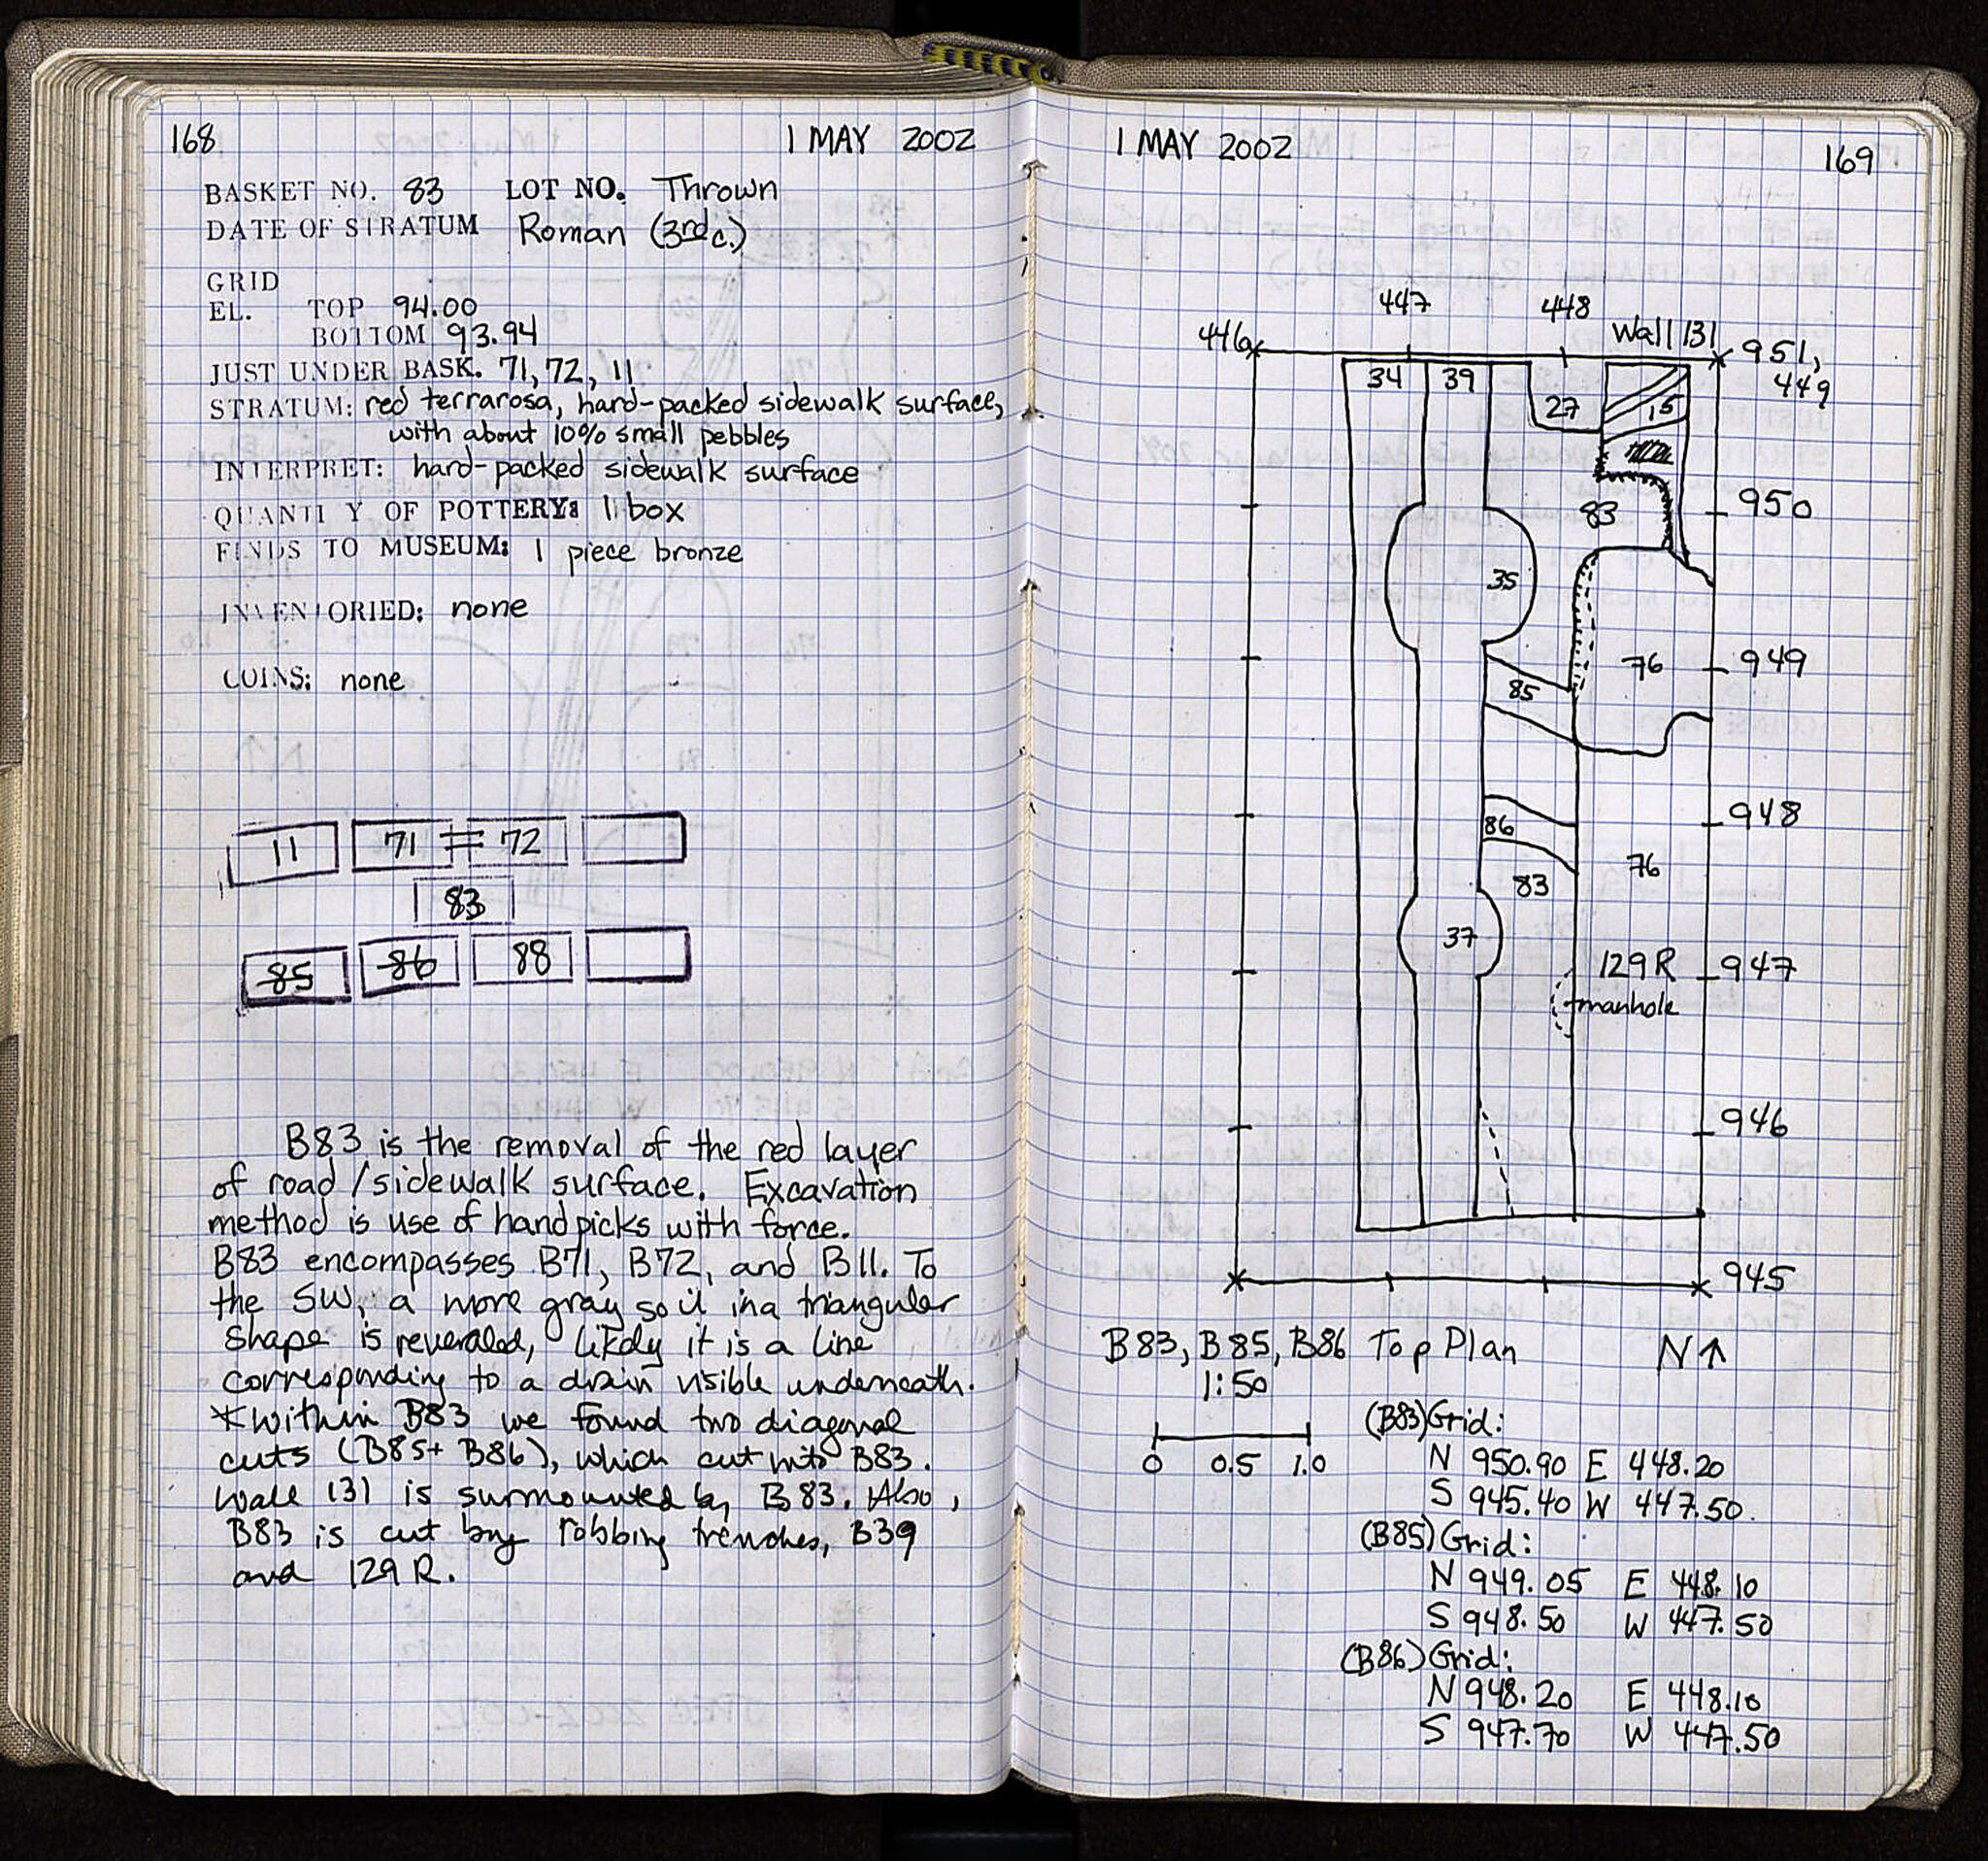 168
1 MAY 2002
BASKET NO. 83 LOT NO. Thrown
DATE OF STRATUM Roman (3rd c.)
GRID
EL. TOP 94.00
BOTTOM 93.94
JUST UNDER BASK. 71, 72, 11
STRATUM: red terrarosa, hard-packed sidewalk surface,
with about 10% small pebbles
INTERPRET: hard-packed sidewalk surface
QUANTI Y OF POTTERY: 1 box
FINDS TO MUSEUM: 1 piece bronze
INVENTORIED: none
COINS: none
11 71 = 72
83
85 86 88
B83 is the removal of the red layer
of road/sidewalk surface. Excavation
method is use of handpicks with force.
B83 encompasses B71, B72, and B11. To
the SW, a more gray soil in a triangular
shape is revealed, likely it is a line
corresponding to a drain visible underneath.
*within B83 we found two diagonal
cuts (B85 + B86), which cut into B83.
Wall 131 is surmounted by B83. Also,
B83 is cut by robbing trenches, B39
and 129R.
1 MAY 2002
169
447
448
446
Wall 131
951,
449
34
39
27
15
83
950
35
76
949
85
948
86
76
83
37
129R
947
manhole
946
945
B83, B85, B86 Top Plan N↑
1:50
0 0.5 1.0
(B83) Grid:
N 950.90 E 448.20
S 945.40 W 447.50.
(B85) Grid:
N 949.05 E 448.10
S 948.50 W 447.50
(B86) Grid:
N 948.20 E 448.10
S 947.70 W 447.50